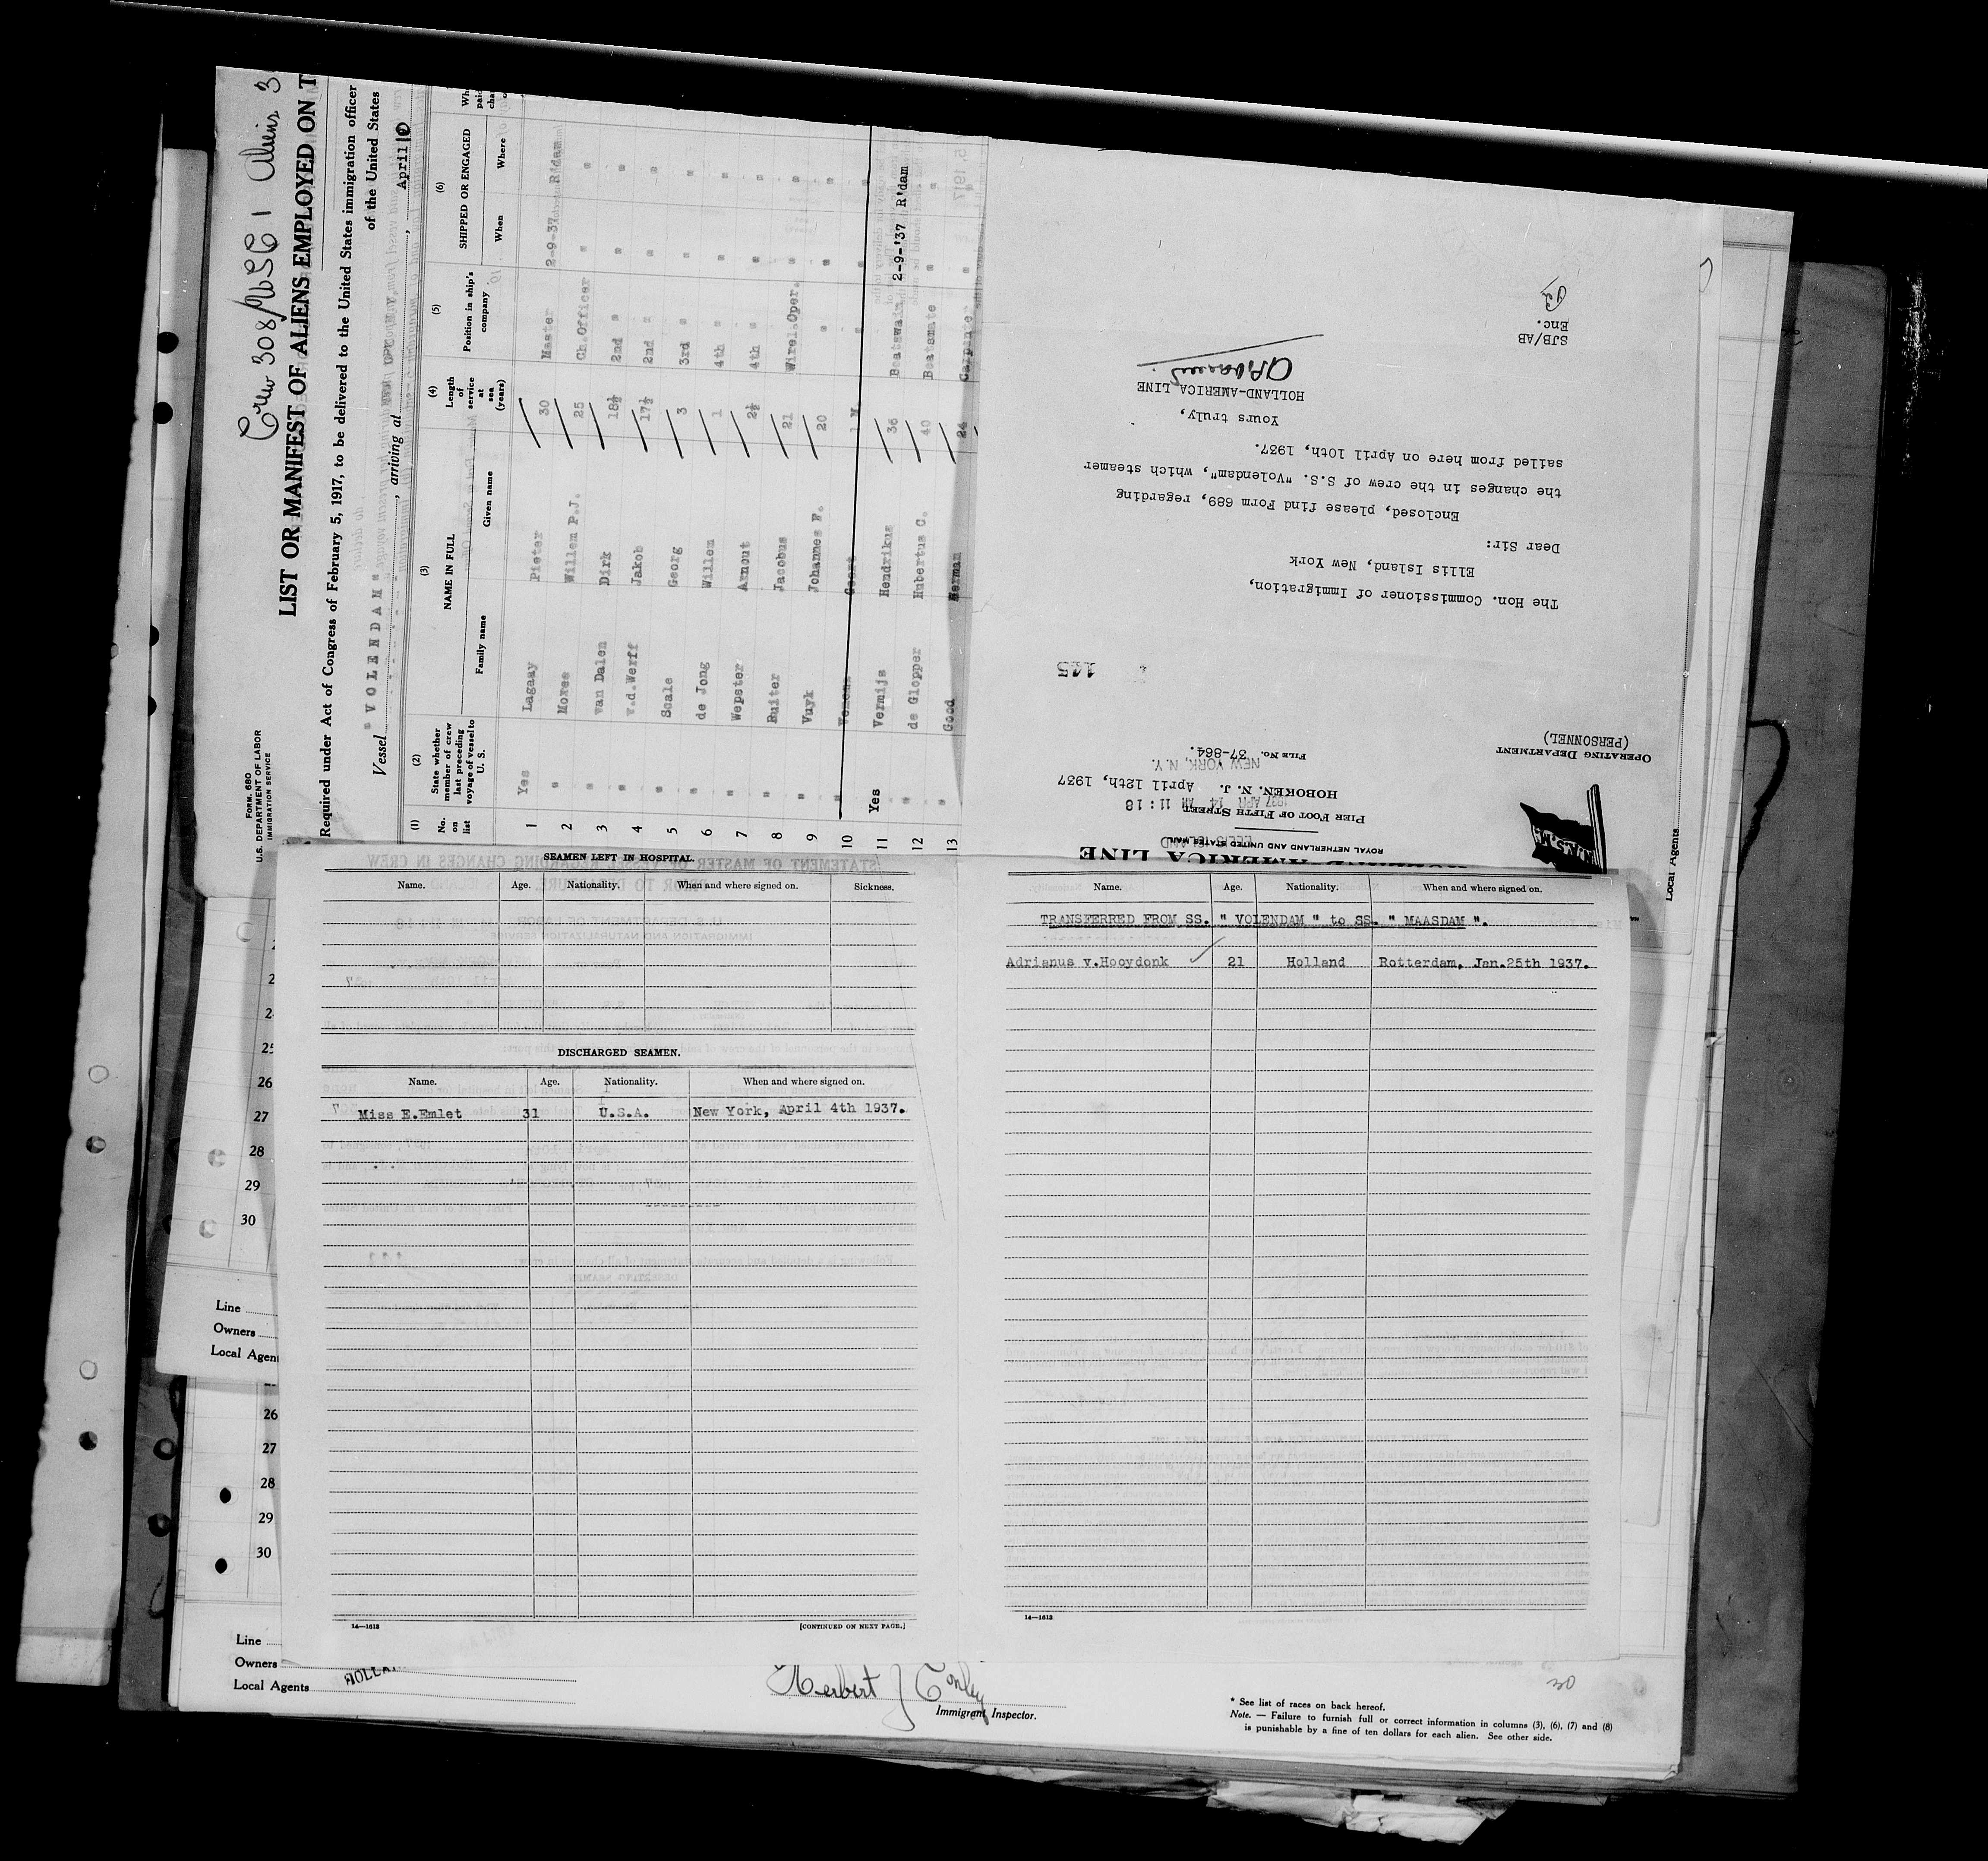 Crew 308/ 1 Aliens 3
LIST OR MANIFEST OF ALIENS EMPLOYED ON T
FORM 680
U.S. DEPARTMENT OF LABOR
IMMIGRATION SERVICE
Required under Act of Congress of February 5, 1917, to be delivered to the United States immigration officer
of the United States
Vessel "VOLENDAM" , arriving at , April 10
(1) (2) (3) (4) (5) (6)
No. on list
State whether member of crew last preceding voyage of vessel to U. S.
NAME IN FULL
Family name Given name
Length of service at sea (years)
Position in ship's company
SHIPPED OR ENGAGED
When Where
1 Yes Lagaay Pieter 30 Master 2-9-37 R'dam
2 " Moree Willem P.J. 25 Ch.Officer " "
3 " van Dalen Dirk 18½ 2nd " " "
4 " v.d.Werff Jakob 17½ 2nd " " "
5 " Scale Georg 3 3rd " " "
6 " de Jong Willem 1 4th " " "
7 " Wepster Arnout 2½ 4th " " "
8 " Ruiter Jacobus 21 Wirel.Oper. " "
9 " Vuyk Johannes F. 20 " " "
10 " Geert " " "
11 Yes Vermijs Hendrikus 36 Boatswain 2-9-'37 R'dam
12 " de Glopper Hubertus C. 40 Boatsmate " "
13 " Good Herman 24 Carpente " "
HOLLAND-AMERICA LINE
ROYAL NETHERLAND AND UNITED STATES MAIL
ELLIS ISLAND
PIER FOOT OF FIFTH STREET
1937 APR 14 AM 11:18
HOBOKEN. N. J. April 12th, 1937
NEW YORK, N.Y.
OPERATING DEPARTMENT
(PERSONNEL)
FILE NO. 37-864.
145
N.A.S.M.
The Hon. Commissioner of Immigration,
Ellis Island, New York
Dear Sir:
Enclosed, please find Form 689, regarding
the changes in the crew of S.S. "Volendam", which steamer
sailed from here on April 10th, 1937.
Yours truly,
HOLLAND-AMERICA LINE
SJB/AB
Enc.
Local Agents
SEAMEN LEFT IN HOSPITAL.
Name. Age. Nationality. When and where signed on. Sickness.
DISCHARGED SEAMEN.
Name. Age. Nationality. When and where signed on.
Miss E.Emlet 31 U.S.A. New York, April 4th 1937.
14—1613
[CONTINUED ON NEXT PAGE.]
Name. Age. Nationality. When and where signed on.
TRANSFERRED FROM SS. " VOLENDAM " to SS. " MAASDAM ".
Adrianus v.Hooydonk 21 Holland Rotterdam, Jan.25th 1937.
14—1613
25
26
27
28
29
30
Line
Owners
Local Agen
26
27
28
29
30
Line
Owners
Local Agents HOLLA
Herbert J Conley
Immigrant Inspector.
30
* See list of races on back hereof.
Note. — Failure to furnish full or correct information in columns (3), (6), (7) and (8)
is punishable by a fine of ten dollars for each alien. See other side.